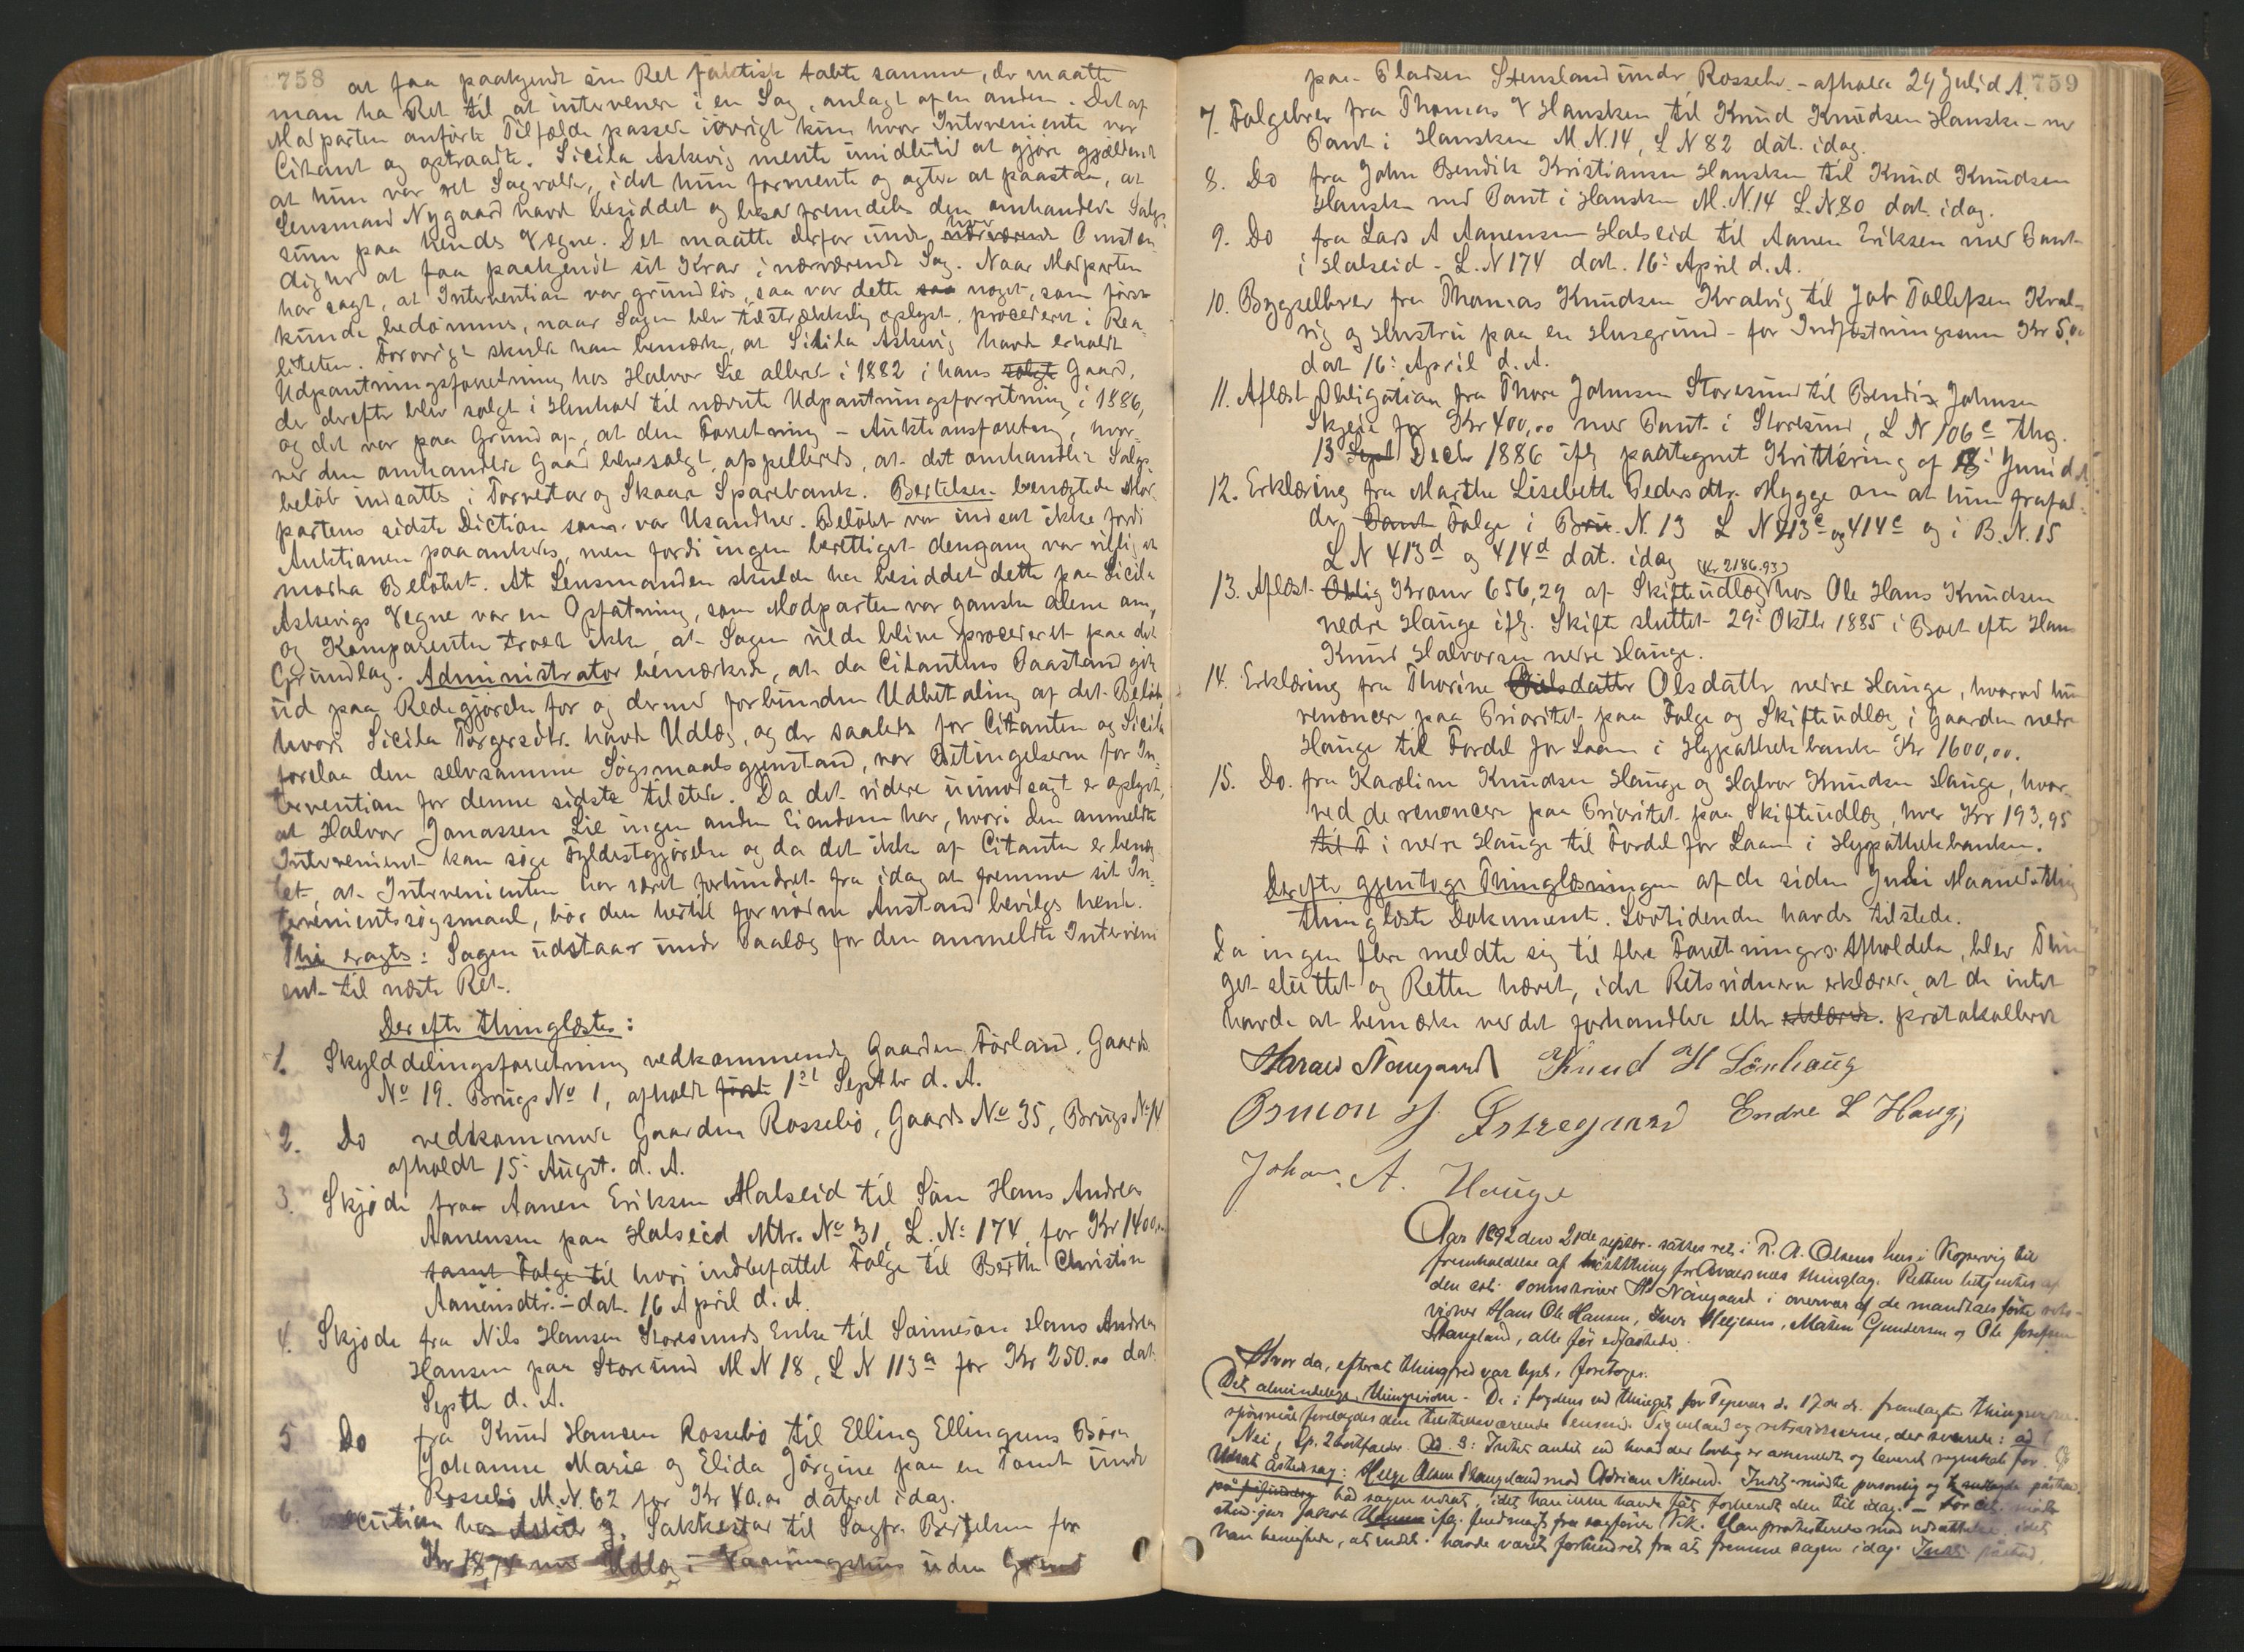 758
at faa paakjendt sin Ret faktisk tabte samme, der maatte
man ha Ret til at intervenere i en Sag, anlagt af en anden. Det af
Modparten anførte Tilfælde passede iøvrigt kun hvor Intervenienten var
Citant og optraadte. Sicila Askevig mente imidlertid at gjøre gjældende
at hun var ret Sagvolder, idet hun formente og agter at paastaa, at
Lensmand Nygaard havde besiddet og besad fremdeles den omhandlede Salgs-
sum paa hendes Vegne. Det maatte derfor under hver nærværende Omstæn-
dighed at faa paakjendt sit Krav i nærværende Sag. Naar Modparten
har sagt, at Intervention var grundløs, saa var dette saa noget, som først
kunde bedømmes, naar Sagen blev tilstrækkelig oplyst, procederet i Rea-
liteten. Forøvrigt skulde han bemærke, at Sicila Askevig havde erholdt
Udpantningsforretning hos Halvor Lie allerede i 1882 i hans solgt Gaard,
der derefter blev solgt i Henhold til nævnte Udpantningsforretning i 1886,
og det var paa Grund af, at den Forretning - Auktionsforretning, hvor-
ved den omhandlede Gaard blev solgt, appelleredes, at det omhandlede Salgs-
beløb indsattes i Torvestad og Skaare Sparebank. Bertelsen benægtede Mod-
partens sidste Diction som var Usandhed. Beløbet var indsat ikke fordi
Auktionen paaankedes, men fordi ingen berettiget dengang var villig at
modta Beløbet. At Lensmanden skulde ha besiddet dette paa Sicila
Askevigs Vegne var en Opfatning, som Modparten var ganske alene om,
og Komparenten troede ikke, at Sagen vilde blive procederet paa det
Grundlag. Administrator bemærkede, at da Citantens Paastand gik
ud paa Redegjørelse for og dermed forbunden Udbetaling af det Beløb,
hvori Sicila Torgersdtr. havde Udlæg, og der saaledes for Citanten og Sicila
forelaa den selvsamme Søgsmaalsgjenstand, var Betingelserne for In-
tervention for denne sidste tilstede. Da det videre uimodsagt er oplyst,
at Halvor Jonassen Lie ingen anden Eiendom har, hvori den anmeldte
Intervenient kan søge Fyldestgjørelse og da det ikke af Citanten er benæg-
tet, at Intervenienten har været forhindret fra idag at fremme sit In-
tervenientsøgsmaal, bør den hertil fornødne Anstand bevilges hende.
Thi eragtes: Sagen udstaar under Paalæg for den anmeldte Interveni
ent til næste Ret.
Derefter thinglæstes:
1. Skylddelingsforretning vedkommende Gaarden Førland, Gaards
No 19. Brugs No 1, afholdt først 1st Septbr d. A.
2. Do vedkommende Gaarden Rossebø, Gaards No 35, Brugs No 14
afholdt 15: August. d. A.
3. Skjøde fra Aanen Eriksen Halseid til Søn Hans Andreas
Aanensen paa Halseid Mtr. No 31, L. No 174, for Kr 1400,00
samt Følge til hvori indbefattet Følge til Berthe Christine
Aanensdtr. - dat. 16 April d. A.
4. Skjøde fra Nils Hansen Storesunds Enke til Sønnesøn Hans Andreas
Hansen paa Storesund M N 18, L N 113a for Kr 250.00 dat.
Septbr d. A.
5. Do fra Knud Hansen Rossebø til Elling Ellingsens Børn
Johanne Marie og Elida Jørgine paa en Tomt under
Rossebø M. N. 62 for Kr 40.00 dateret idag.
6. Execution hos Askild J. Sakkestad til Sagfr. Bertelsen for
Kr 18,74 med Udlæg i Vaaningshus uden Grund
759
paa Pladsen Stensland under Rossebø - afholdt 29 Juli d. A.
7. Følgebrev fra Thomas V Hansken til Knud Knudsen Hanske - med
Pant i Hanskene M. N. 14, L N 82 dat. idag.
8. Do fra John Bendik Kristiansen Hansken til Knud Knudsen
Hansken med Pant i Hansken M. N. 14 L. N. 80 dat. idag.
9. Do fra Lars A Aanensen Halseid til Aanen Eriksen med Pant
i Halseid - L. N 174 dat. 16: April d. A.
10. Bygselbrev fra Thomas Knudsen Kvalvig til Job Tollefsen Kval-
vig og Hustru paa en Husgrund - for Indfæstningssum Kr 5,00
dat 16: April d. A.
11. Aflæst Obligation fra Thore Johnsen Storesund til Bendix Johnsen
Skjede for Kr 400,00 med Pant i Storesund, L N 106c thg.
13 Sept Decbr 1886 iflg paategnet Kvittering af 18: Juni d. A.
12. Erklæring fra Marthe Lisebeth Pedersdtr. Mygge om at hun frafal-
der Pant Følge i Bru. N. 13 L N 413c og 414c og i B. N. 15
L N 413d og 414d dat. idag (Kr. 2186.93)
13. Aflæst Oblig Kroner 656,29 af Skifteudlæg hos Ole Hans Knudsen
nedre Hauge iflg. Skifte sluttet 29: Oktbr 1885 i Boet efter Hans
Knud Halvorsen nedre Hauge.
14. Erklæring fra Thorine Olsdatter Olsdatter nedre Hauge, hvorved hun
renoncerer paa Prioritet paa Følge og Skifteudlæg i Gaarden nedre
Hauge til Fordel for Laan i Hypothekbanken Kr 1600,00.
15. Do. fra Karoline Knudsen Hauge og Halvor Knudsen Hauge, hvor-
ved de renoncere paa Prioritet paa Skifteudlæg, hver Kr 193,95
til F i nedre Hauge til Fordel for Laan i Hypothekbanken.
Derefter gjentoges Thinglæsningen af de siden Juli Maanedsthing
thinglæste Dokumenter. Lovtidenden havdes tilstede.
Da ingen flere meldte sig til flere Forretningers Afholdelse, blev Thin
get sluttet og Retten hævet, idet Retsvidnerne erklærede, at de intet
havde at bemærke ved det forhandlede eller erklærede. protokollerede
Harald Nørregaard Knud H Lønhaug
Osmon H. Østregaard Endre L Haug,
Johan. A. Hauge
Aar 1892 den 21de septbr. sattes ret i R. A. Olsens hus i Kopervig til
fremholdelse af høstthing for Avaldsnes thinglag. Retten betjentes af
den sst. sorenskriver Hd Nørregaard i overvær af de mandtalsførte rets-
vidner Hans Ole Hansen, Iver Helgesens, Mathias Gundersen og Ole Josefsen
Stangland, alle før edfæstede.
Hvor da, efterat thingfred var lyst, foretoges.
Det almindelige thingvidne. De i fogdens ved thinget for Tysvær d. 17de ds. fremlagte thingvidne-
spørsmål forelagdes den tilstedeværende lensmd. Sigvaland og retsvidnerne, der svarede: ad 1
Nei, Sp. 2 bortfalder. Ad. 3: Intet andet end hvad der lovlig er anmeldt og leveret regnskab for.
Udsat åstedssag: Helge Olsen Stangeland mod Adrian Nilsen. Indst. mødte personlig og påstod
på håd sagen udsat, idet han ikke havde fåt forberedt den til idag. - For cit. mødte
stud. jur Jakob iflg. fuldmagt fra sagfører Vik. Han protesterede mod udsættelse, idet
han benegtede, at indst. havde været forhindret fra at fremme sagen idag. Indst. påstod,